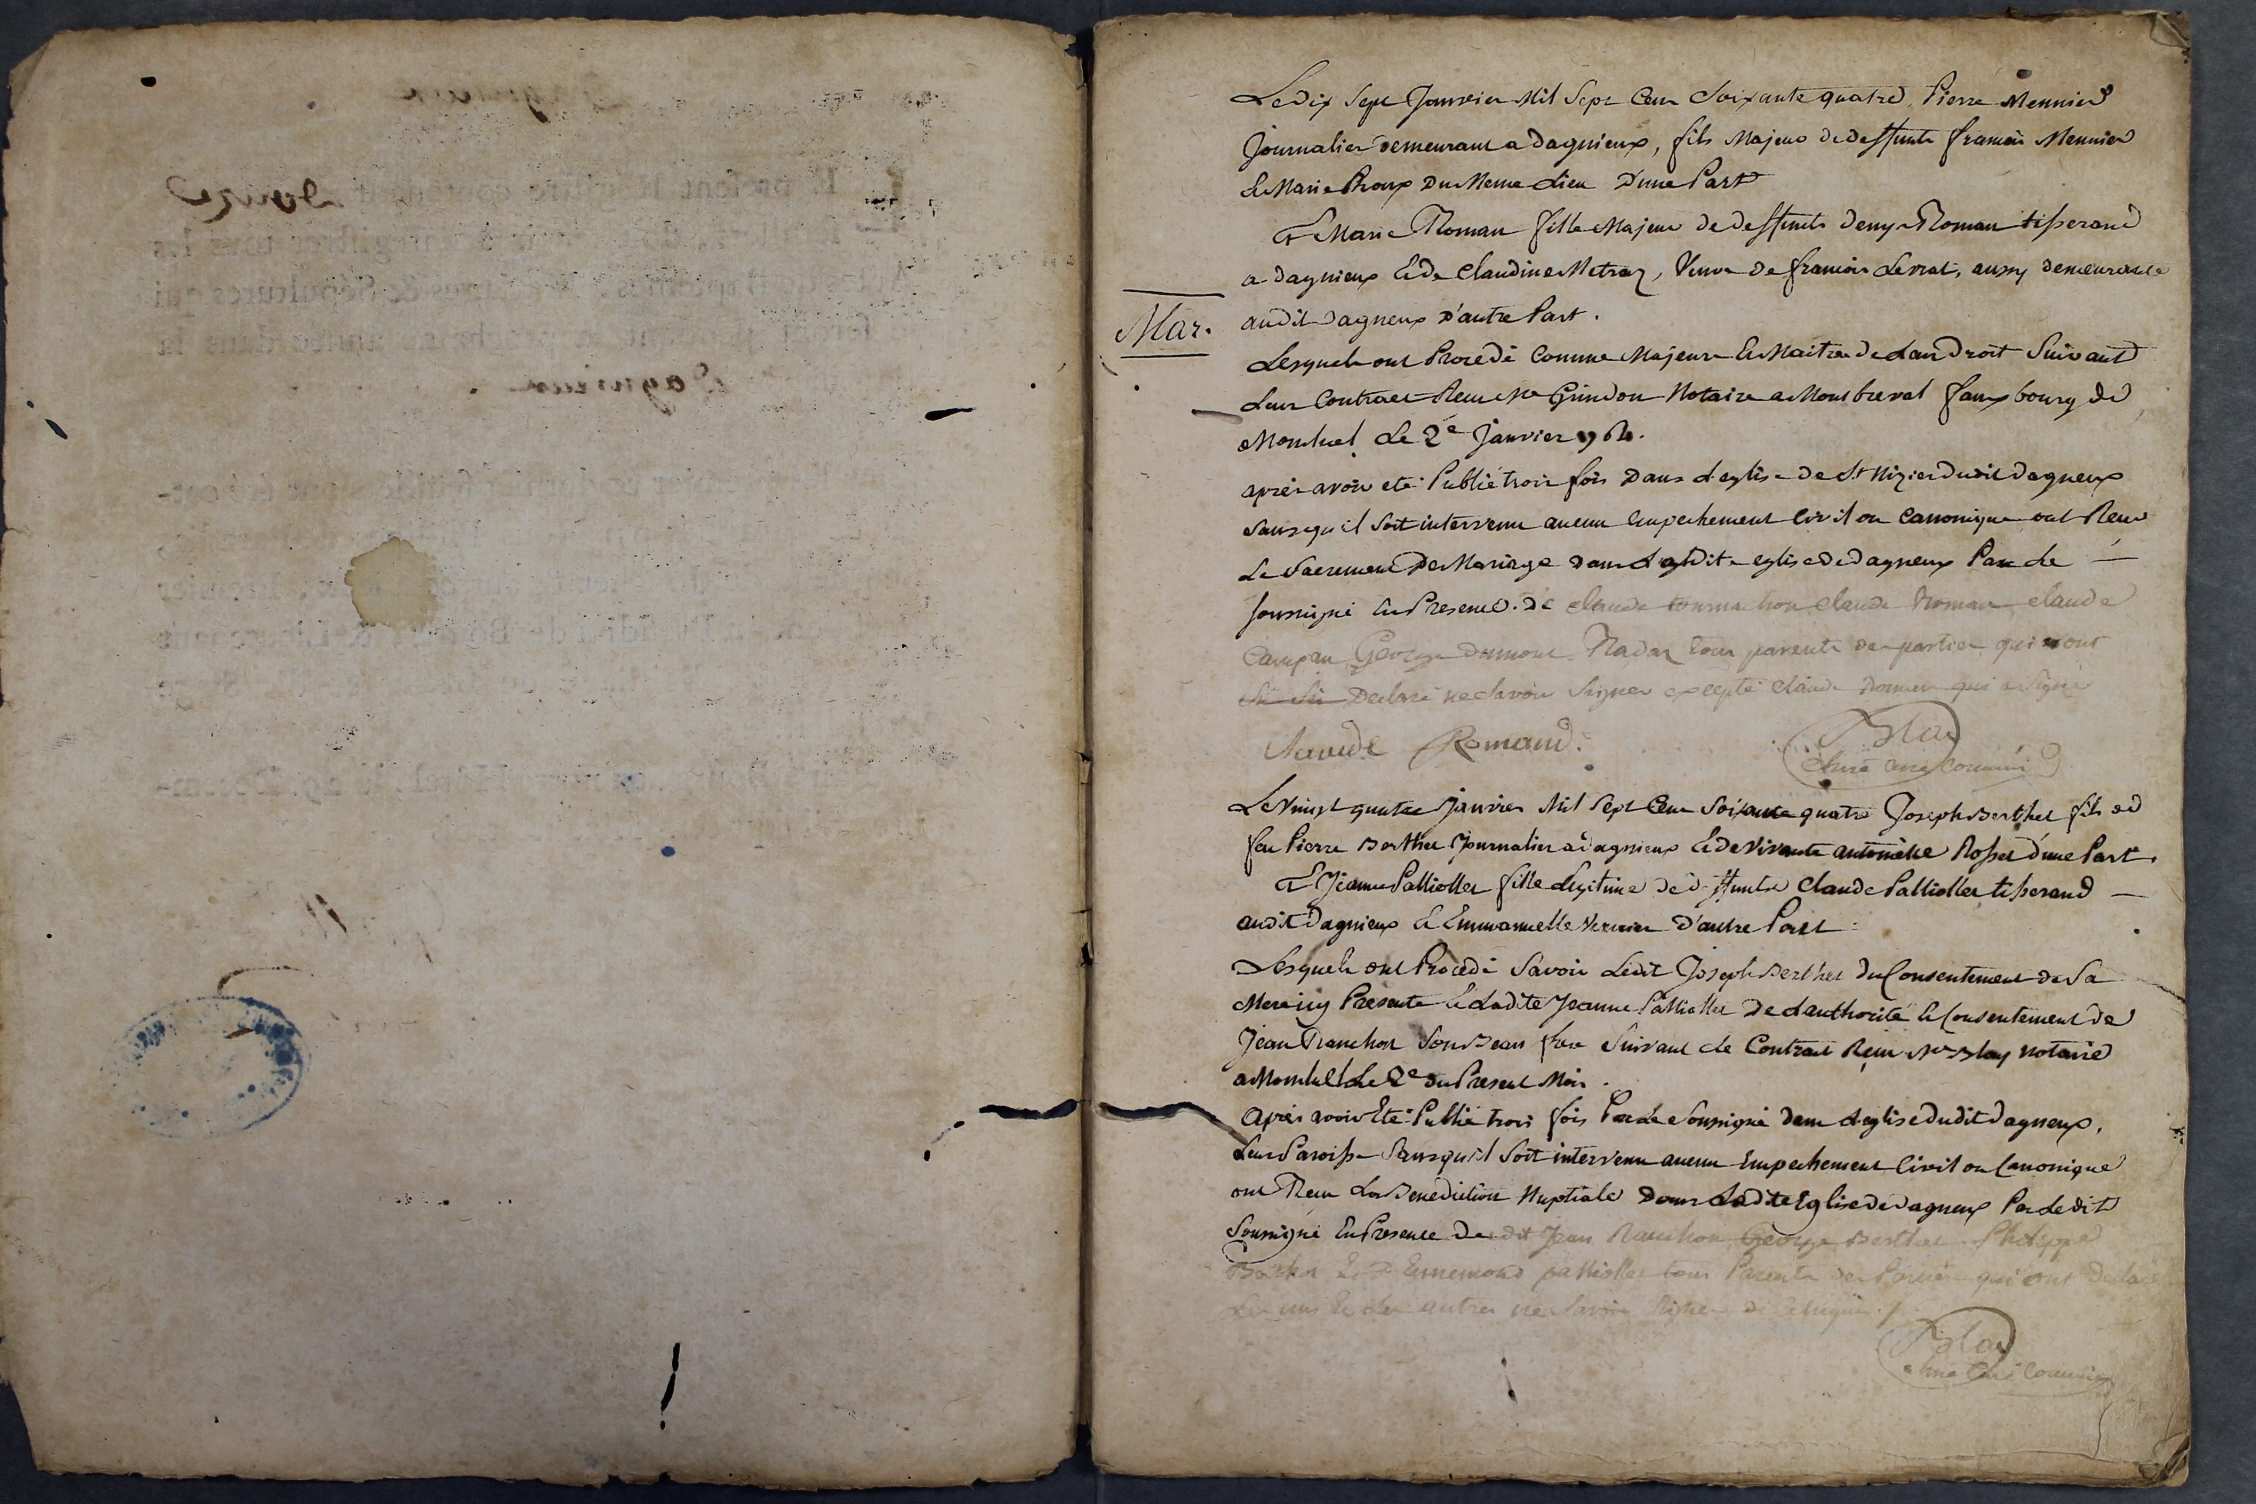 Le dix sept Janvier Mil Sept Cent Soixante quatre, Pierre Mennier
Journalier demeurant a dagnieux, fils Majeur de deffunts francois Mennier
& Marie Proux du Meme Lieu D'une Part
Et Marie Roman fille Majeure de deffunts deny Roman tisserand
a dagnieux & de Claudine Metraz, Veuve de francois Levrat, aussy demeurante
audit dagneux d'autre Part.
Mar.
Lesquels ont Procedé Comme Majeurs & Maitres de Leur droit Suivant
Leur Contract Receu Me Grindon Notaire a Montbreval fauxbourg de
Monluel Le 2e Janvier 1764.
après avoir eté Publié trois fois Dans L'eglise de St Nizier dudit dagneux
Sans qu'il Soit intervenu aucun Empechement Civil ou Canonique ont Receu
Le Sacrement De Mariage dans Ladite eglise de dagneux Par Le
Soussigné En Presence de Claude Claude Roman Claude
George tous parents des parties qui ont
Declaré ne Savoir Signer excepté Claude Roman qui a Signé
Claude Romand
Curé
Le Vingt quatre Janvier Mil Sept Cent Soixante quatre Joseph Berthet fils de
feu Pierre Berthet Journalier a dagnieux & de Vivante antoinette Rosset d'une Part.
Et Jeanne Palliollet fille Legitime de deffunts Claude Palliollet tisserand
audit dagnieux & Emmanuelle d'autre Part
Lesquels ont Procedé Savoir Ledit Joseph Berthet du Consentement de Sa
Mere icy Presente & Ladite Jeanne Palliollet De L'authorité & Consentement de
Jean Ranchon Son Beau frere Suivant Le Contract Reçu Me Blay notaire
a Monluel Le 2e du Present Mois.
Après avoir Eté Publié trois fois Par Le Soussigné dans L'eglise dudit dagneux,
Leur Paroisse Sans qu'il Soit intervenu aucun Empechement Civil ou Canonique
ont Receu La Benediction Nuptiale Dans Ladite Eglise de dagneux Par Ledit
Soussigné En Presence Dudit Jean Ranchon George Berthet Philippe
Ennemond palliollet tous Parents des Parties qui ont Declaré
Les uns & Les autres ne Savoir Signer de Ce
Curé